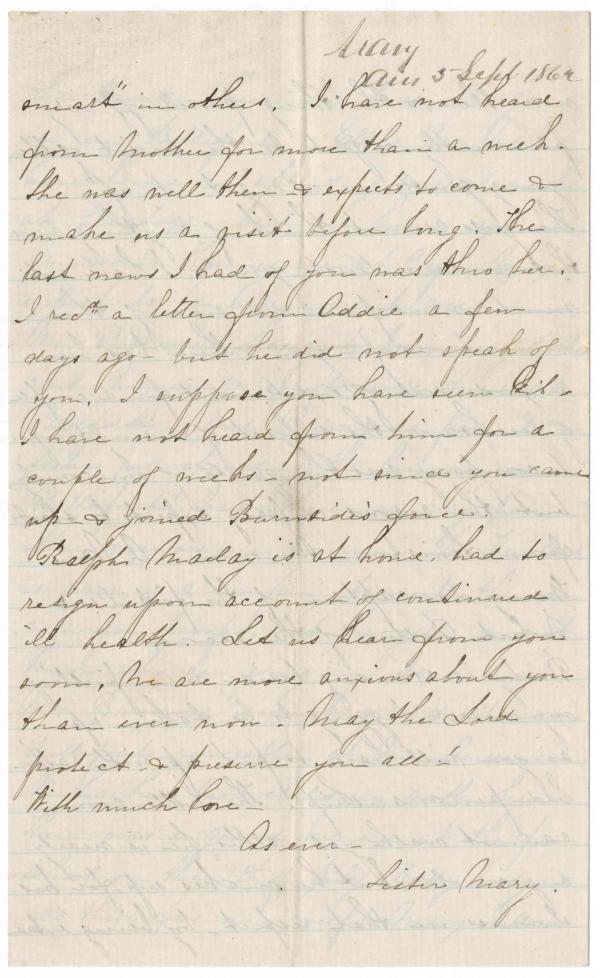 Mary
Ans 5 Sept 1862
smart" in others. I have not heard
from Mother for more than a week.
She was well then & expects to come &
make us a visit before long. The
last news I had of you was thro her.
I recd a letter from Addie a few
days ago - but he did not speak of
you. I suppose you have seen Gil -
I have not heard from him for a
couple of weeks - not since you came
up & joined Burnside's force.
Ralph Maclay is at home. had to
resign upon account of continued
ill health. Let us hear from you
soon. We are more anxious about you
than ever now. May the Lord
protect & preserve you all!
With much love -
As ever -
Sister Mary.